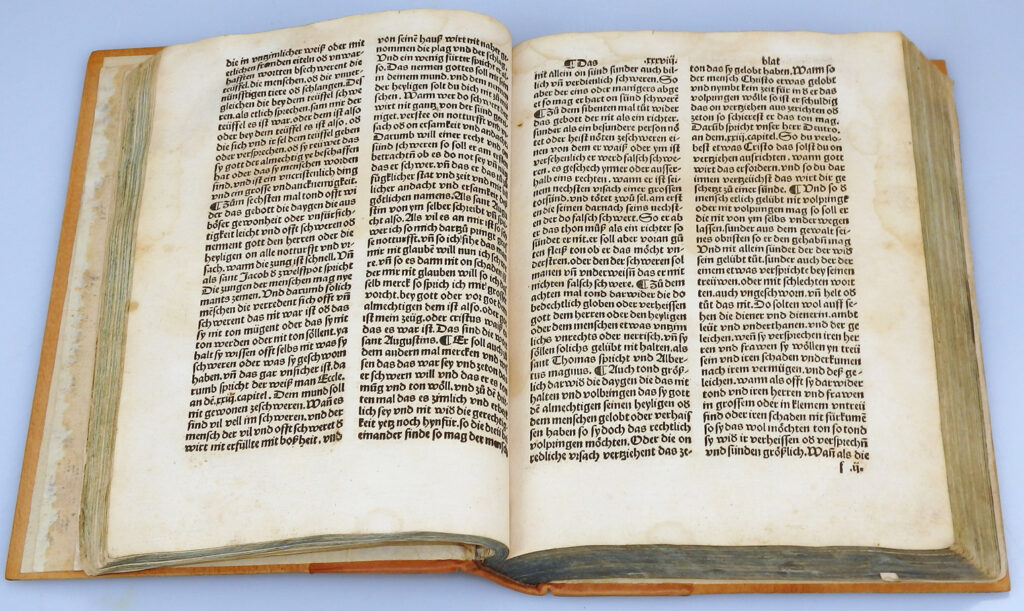 die in vnzimlicher weiß oder mit
etlichen frömden eiteln oð vnwar-
hafften wortten bschwerent die
teüffel. die menschen. oð die vnuer-
nünfftigen tiere oð schlangen. Deß
gleichen die bey dem teüffel schwe
rent. als etlich sprechen. sam mir der
teüffel es ist war. oder dem ist also
oder bey dem teüffel es ist also. oð
die sich vñ ir sel dem teüffel geben
oder versprechen. oð sy reüwet das
sy gott der almechtig ye beschaffen
hat oder das sy menschen worden
sind. vnd ist ein vncristenlich ding
vnd ein grosse vndancknemigkeit.
¶ Zům sechsten mal tond offt wi
der das gebott die daygen die aus
böser gewonheit oder vnfürsich-
tigkeit leicht vnd offt schweren oð
nennent gott den herren oder die
heyligen on alle notturfft vnd vr-
sach. wann die zung ist schnell. Vñ
als sant Jacob ð zwelffpot spricht
Die zungen der menschen mag nye
mants zemen. Vnd darumb solich
menschen die verredent sich offt vñ
schwerent das nit war ist oð das
sy nit ton mügent oder das sy nit
ton werden oder nit ton söllent. ya
halt sy wissen offt selbs nit was sy
schweren oder was sy geschworn
haben. vñ das gar vnsicher ist. da
rumb spricht der weiß man Eccle.
an dē.xxiij.capitel. Dem mund soll
nit gewonen zeschweren. Wañ es
sind vil veil im schweren. vnd der
mensch der vil vnd offt schwert der
wirt mit erfüllte mit boßheit. vnd
von seinē hauß wirt nit naher ge-
nommen die plag vnd der schlag.
Vnd ein wenig fürter spricht er al
so. Das nennen gottes soll nit sein
in deinem mund. vnd dem namen
der heyligen solt du dich nit zů
schen. Wann wer do schwert der
wirt nit gantz von der sünd gerei
niget. verstee on notturfft vnd vr-
sach oð on ersamkeit vnd andacht.
Darumb will einer recht vnd on
sünd schweren so soll er am ersten
betrachtñ ob es do not sey vñ nutz
das er schwer. vñ das er das thů
fügklicher stat vnd zeit vnd mit
licher andacht vnd ersamkeit des
götlichen namens. Als sant Augu
stin von ym selber schreibt vñ spri-
cht also. Als vil es an mir ist so schwer
wer ich so mich dartzů zwingt gros
se notturfft. vñ so ich sihe das man
mir nit glaubt will nun ich schwe
re. vñ so es darin nit on schaden ist
der mir nit glauben will so ich das
selb merck so sprich ich mit grosser
vorcht. bey gott oder vor gott dem
almechtigen dem ist also. oder gott
ist mein zeüg. oder cristus waiß
das es war ist. Das sind die wort
sant Augustins. ¶ Er soll auch zů
dem andern mal mercken vnd wis
sen das das war sey vnd zeton das
er schwern will vnd das er es ton
müg vnd ton wöll. vnd zů dē drit
ten mal das es zimlich vnd erber-
lich sey vnd nit wið die gerechtig-
keit yetz noch hynfür. so die dreü bey
einander sinde so mag der mensch
¶ Das .xxxviij. blat
nit allein on sünd sunder auch bil-
lich vñ verdienlich schweren. So
aber der eins oder manigers abge
et so mag er hart on sünd schwerē
¶ Zů dem sibenten mal tůt wider
das gebott der nit als ein richter.
sunder als ein besundere person nö
tet oder heist nöten zeschweren ei-
nen von dem er waiß oder ym ist
versehenlich er werd falsch schwe-
ren. es geschech ymer oder ausser-
halb eins rechten. wann er ist sei-
nem nechsten vrsach einer grossen
totsünd. vnd tötet ym sein sel. am erst
en die seinen darnach seins nechst-
en der do falsch schwert. So er ab
er das thon můß als ein richter so
sündet er nit. er soll aber voran gů
ten fleiß ton ob er das möcht vn-
dersten. oder den der schweren sol
manen vñ vnderweisñ das er mit
nichten falsch schwere. ¶ Zů dem
achten mal tond darwider die do
bedechtlich globen oder verheissen
gott dem herren oder den heyligen
oder dem menschen etwas vnzim
lichs vnrechts oder nerrisch. vñ sy
söllen solichs gelübt nit halten. als
sant Thomas spricht vnd Alber-
tus magnus. ¶ Auch tond gröp-
lich darwið die daygen die das nit
halten vnd volbringen das sy got
dē almechtigen seinen heyligen oð
dem menschen gelobt oder verhais
sen haben so sy doch das rechtlich
volpringen möchten. Oder die on
redliche vrsach vertziehent das ze-
ton das sy gelobt haben. Wann so
der mensch Christo etwas gelobt
vnd nymbt kein zeit für in ð er das
volpringen wöll so ist er schuldig
das on vertziehen aus zerichten oð
zeton so schierest er das ton mag.
Darüb spricht vnser herr Deutro.
an dem.xxiij.capitel. So du verlo-
best etwas Cristo das solst du on
vertziehen aufrichten. wann gott
wirt das erfordern. vnd so du dar
innen vertzeichst das wirt dir ge
schetzt zů einer sünde. ¶ Vnd so ð
mensch erlich gelübt nit volpringt
oder nit volpringen mag so soll er
die nit von ym selbs vnderwegen
lassen. sunder aus dem gewalt sei-
nes obristen so er den gehabñ mag
Vnd nit allein sündet der der wið
sein gelübt tůt. sunder auch der der
einem etwas verspricht bey seinen
treüwen. oder mit schlechten wor
ten. auch vngeschworn. vñ helt oð
tůt das nit. Do solten wol auff se-
hen die diener vnd dienerin. ambt
leüt vnd vnderthanen. vnd der ge
leichen. wenn sy versprechen iren her
ren vnd frawen sy wöllen yn treü
sein vnd iren schaden vnderkumen
nach irem vermügen. vnd deß ge-
leichen. wann als offt sy darwider
tond vnd iren herren vnd frawen
in grossem oder in kleinem vntreü
sind oder iren schaden nit fürkumē
so sy das wol möchten ton so tond
sy wið ir verheissen oð versprechñ
vnd sünden gröplich. Wañ als die
f .ij.